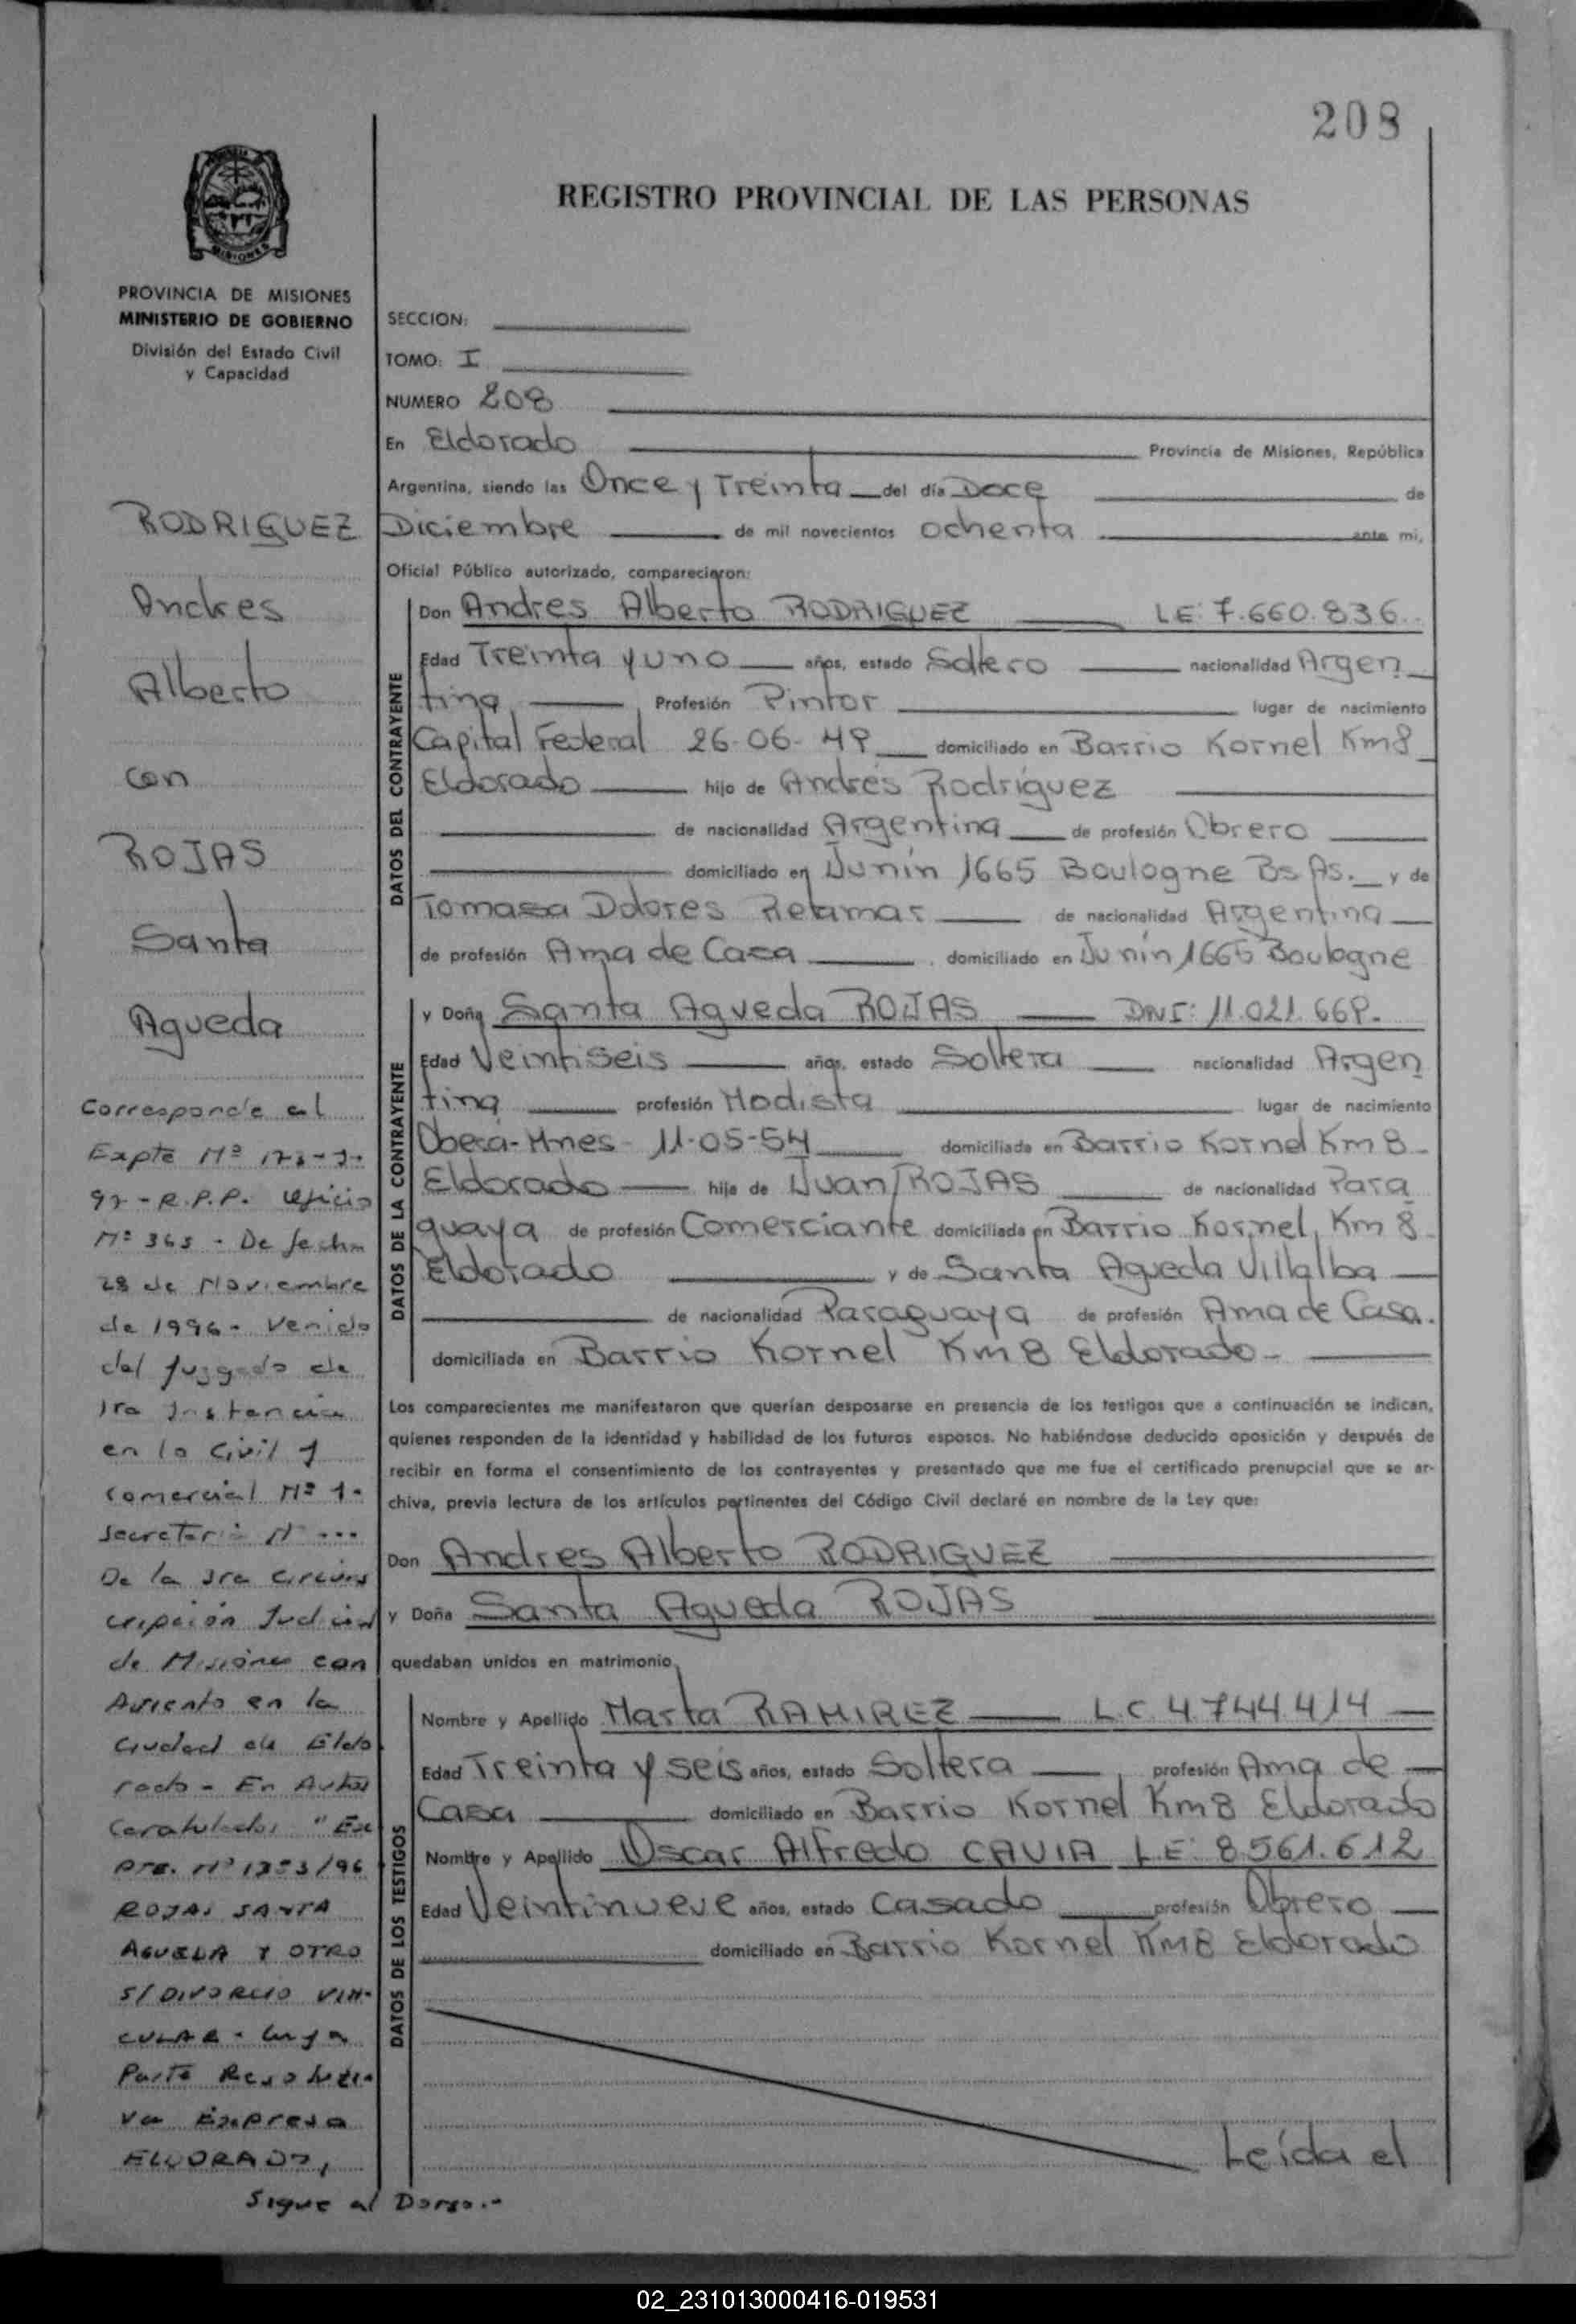 208
REGISTRO PROVINCIAL DE LAS PERSONAS
PROVINCIA DE MISIONES
MINISTERIO DE GOBIERNO
División del Estado Civil
y Capacidad
RODRIGUEZ
Andres
Alberto
con
ROJAS
Santa
Agueda
Corresponde al
Expte Nº
97 - R.P.P. Oficio
Nº 365 - De fecha
28 de Noviembre
de 1996 - Venido
del Juzgado de
1ra Instancia
en lo Civil y
Comercial Nº 1 -
Secretaria Nº ...
De la 3ra Circuns
cripción Judicial
de Misiones con
Asiento en la
Ciudad de Eldo
rado - En Autos
Caratulados "Ex
pte. Nº /96
ROJAS SANTA
AGUEDA Y OTRO
S/ DIVORCIO VIN-
CULAR - Cuya
Parte Resoluti-
va Expresa
ELDORADO,
Sigue al Dorso.-
SECCION:
TOMO: I
NUMERO 208
En Eldorado Provincia de Misiones, República
Argentina, siendo las Once y Treinta del día Doce de
Diciembre de mil novecientos ochenta ante mi,
Oficial Público autorizado, comparecieron:
DATOS DEL CONTRAYENTE
Don Andres Alberto RODRIGUEZ LE: 7.660.836.
Edad Treinta y uno años, estado Soltero nacionalidad Argen
tina Profesión Pintor lugar de nacimiento
Capital Federal 26-06-49 domiciliado en Barrio Kornel Km8
Eldorado hijo de Andrés Rodríguez
de nacionalidad Argentina de profesión Obrero
domiciliado en Junín 1665 Boulogne Bs As. y de
Tomasa Dolores Retamar de nacionalidad Argentina
de profesión Ama de Casa domiciliado en Junín 1665 Boulogne
DATOS DE LA CONTRAYENTE
y Doña Santa Agueda ROJAS DNI: 11.021.669.
Edad Veintiseis años, estado Soltera nacionalidad Argen
tina profesión Modista lugar de nacimiento
Oberá-Mnes - 11-05-54 domiciliada en Barrio Kornel Km 8-
Eldorado hija de Juan ROJAS de nacionalidad Para
guaya de profesión Comerciante domiciliada en Barrio Kornel Km 8-
Eldorado y de Santa Agueda Villalba
de nacionalidad Paraguaya de profesión Ama de Casa.
domiciliada en Barrio Kornel Km 8 Eldorado-
Los comparecientes me manifestaron que querían desposarse en presencia de los testigos que a continuación se indican,
quienes responden de la identidad y habilidad de los futuros esposos. No habiéndose deducido oposición y después de
recibir en forma el consentimiento de los contrayentes y presentado que me fue el certificado prenupcial que se ar-
chiva, previa lectura de los artículos pertinentes del Código Civil declaré en nombre de la Ley que:
Don Andres Alberto RODRIGUEZ
y Doña Santa Agueda ROJAS
quedaban unidos en matrimonio.
DATOS DE LOS TESTIGOS
Nombre y Apellido Marta RAMIREZ LC 4744414
Edad Treinta y seis años, estado Soltera profesión Ama de
Casa domiciliado en Barrio Kornel Km8 Eldorado
Nombre y Apellido Oscar Alfredo CAVIA LE: 8561.612
Edad Veintinueve años, estado Casado profesión Obrero
domiciliado en Barrio Kornel Km8 Eldorado
Leída el
02_231013000416-019531